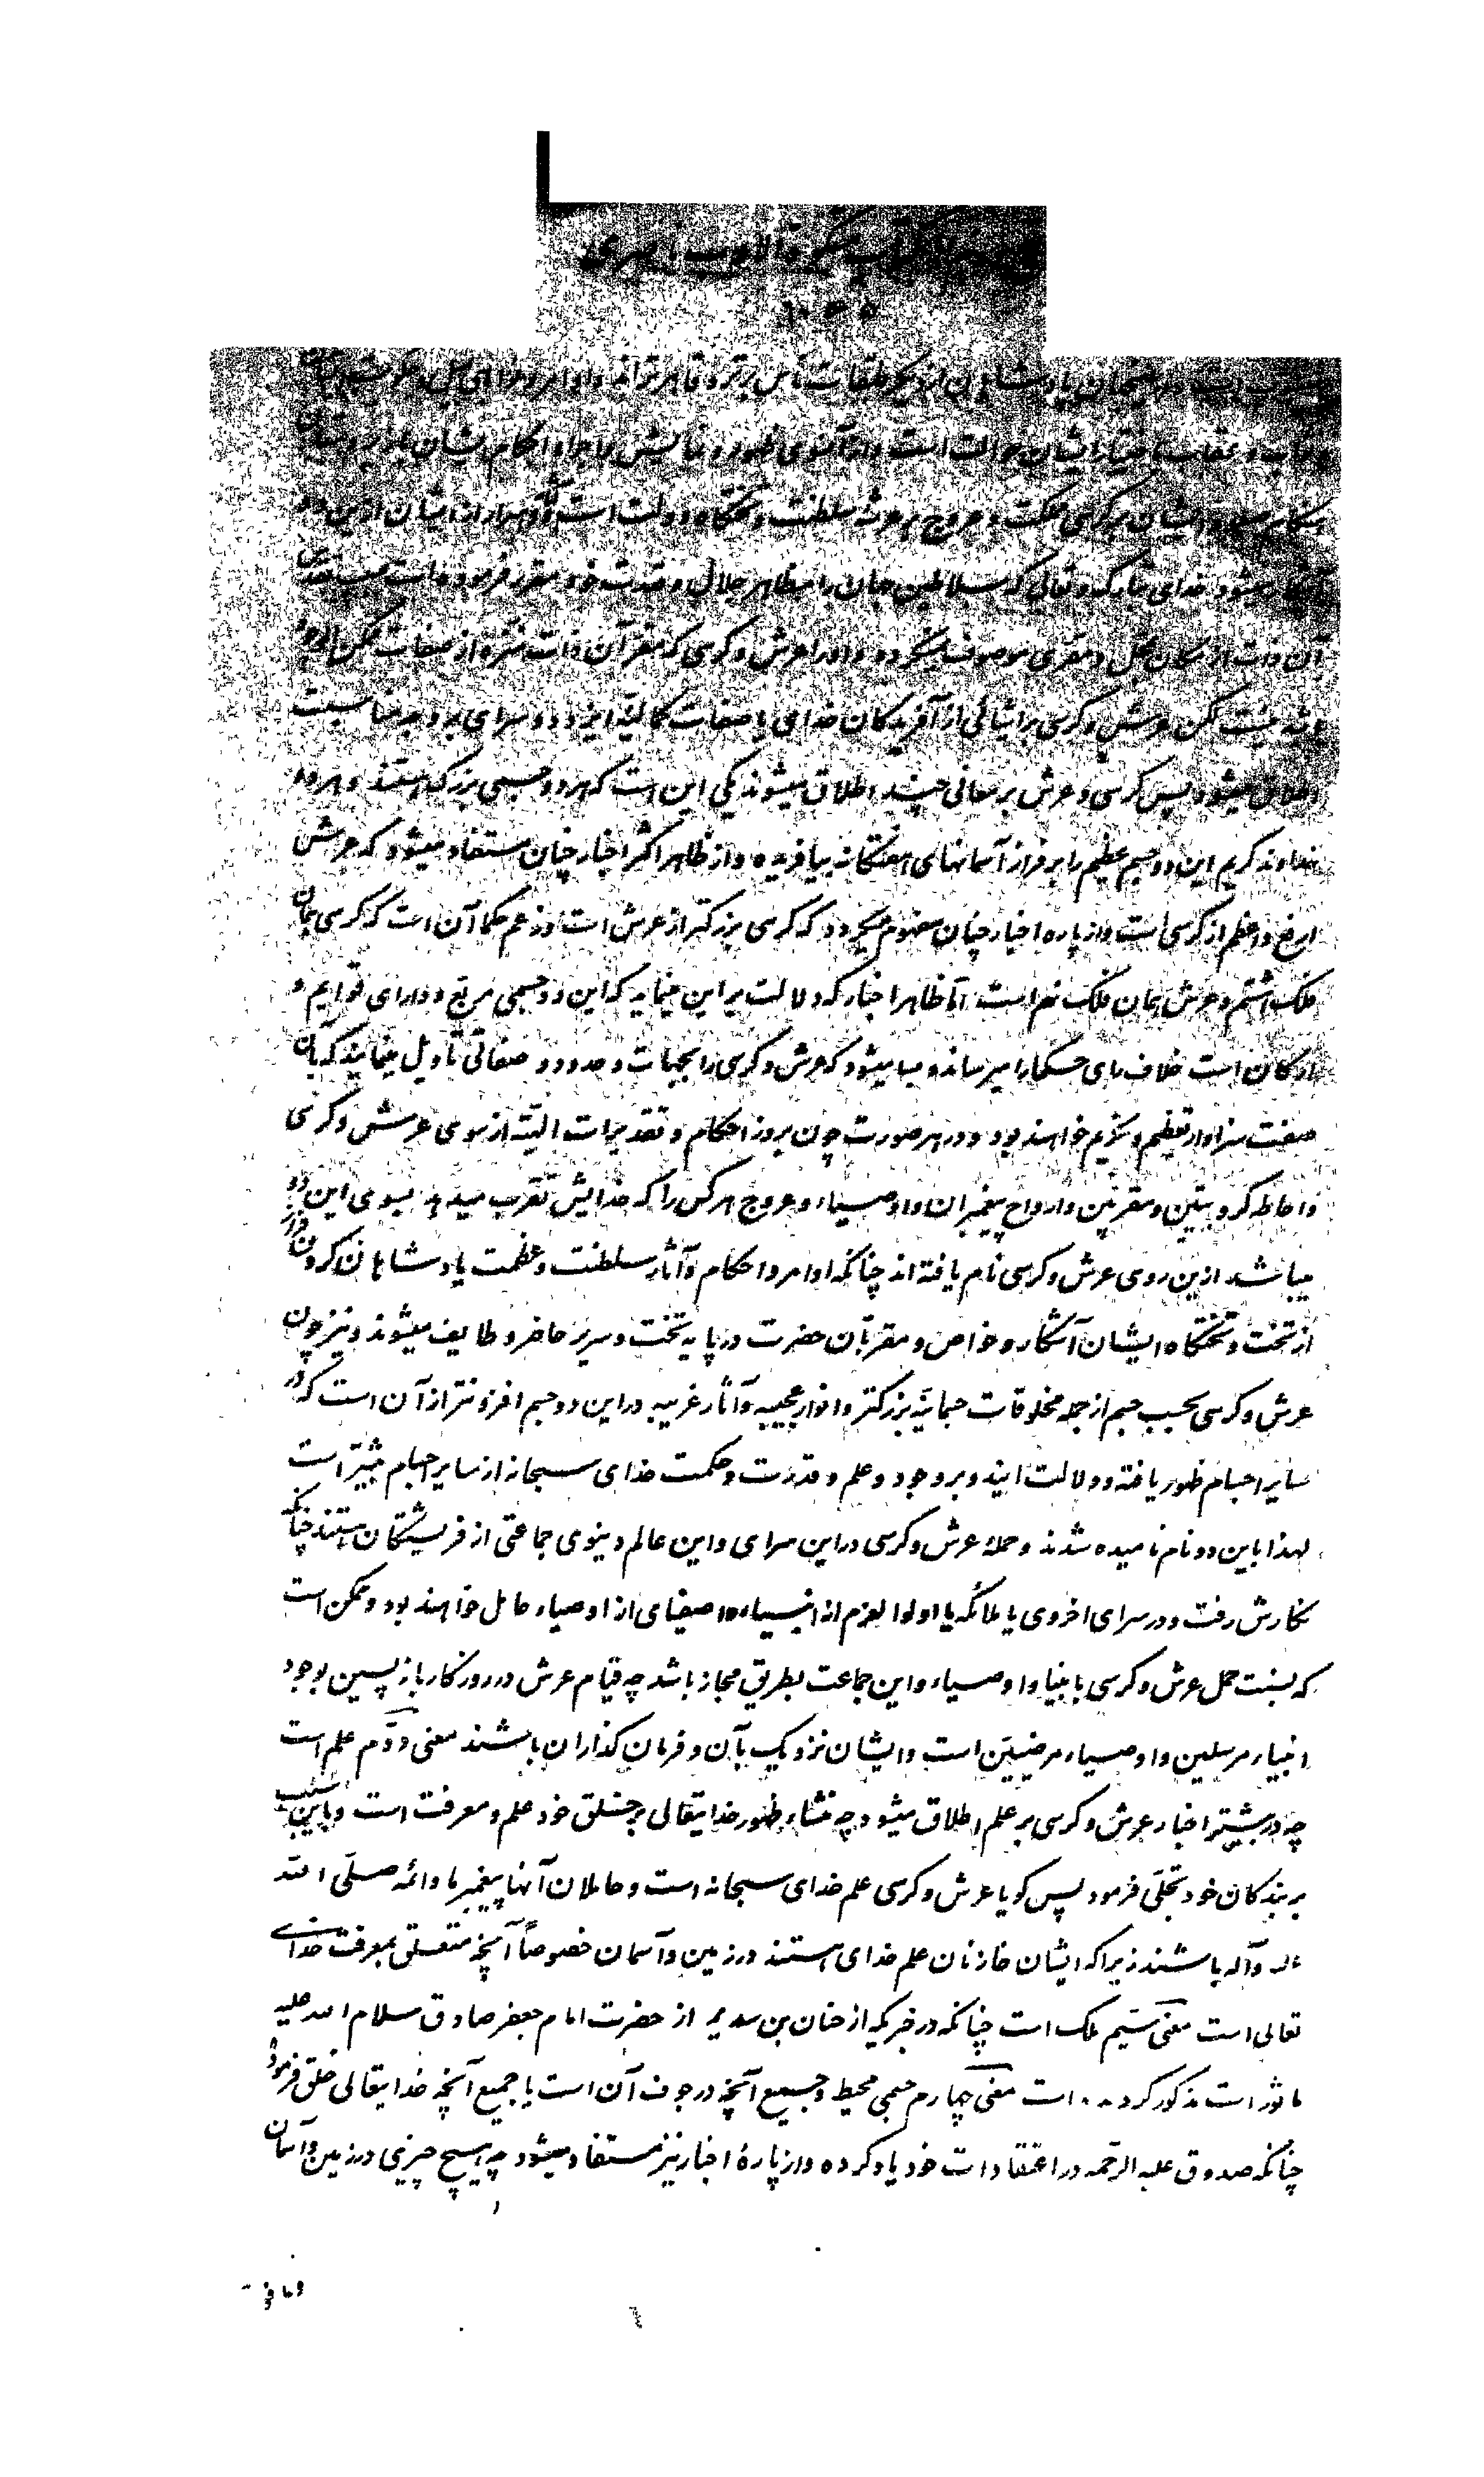 کتاب مشکوة الادب ناصری
طبقات ناس برتر و قاهرتر
ایشان حوالت است و از آنسوی ظهور و نمایش و اجرا و احکام ایشان
ایشان بر کرسی مملکت و عروج بر عرشه سلطنت و تختگاه دولت است ایشان ازین دو
میشود خدای تبارک و تعالی که سلاطین جهان را مظاهر جلال و قدرت خود مقرر فرموده
آن ذات از مکان محل و مقری موصوف نمیگردد و او را عرش و کرسی که مقر آن ذات منزه از صفات ممکن الوجود
باشد نیست لکن عرش و کرسی بر اشیائی از آفریدگان خدای یا صفات کمالیه ایزد دو سرای بر وجه مناسبت
اطلاق میشود پس کرسی و عرش بر معانی چند اطلاق میشوند یکی این است که هر دو جسمی بزرگ هستند و
خداوند کریم این دو جسم عظیم را بر فراز آسمانهای هفتگانه بیافریده و از ظاهر اکثر اخبار چنان مستفاد میشود که عرش
ارفع و اعظم از کرسی است و از پاره اخبار چنان مفهوم میگردد که کرسی بزرگتر از عرش است و زعم حکما آن است که کرسی همان
فلک هشتم و عرش همان فلک نهم است اما ظاهر اخبار که دلالت بر این مینماید که این دو جسمی مربع و دارای قوایم و
ارکان است خلاف رای حکما را میرساند و بسا میشود که عرش و کرسی را بجهات و حدود و صفاتی تأویل مینمایند که بآن
صفت سزاوار تعظیم و تکریم خواهند بود و در هر صورت چون بروز احکام و تقدیرات الهیه از سوی عرش و کرسی
و احاطه کروبیین و مقربین و ارواح پیغمبران و اوصیاء و عروج هر کس را که خدایش تقرب میدهد بسوی این دو
میباشد ازین روی عرش و کرسی نام یافته‌اند چنانکه اوامر و احکام و آثار سلطنت و عظمت پادشاهان
از تخت و تختگاه ایشان آشکار و خواص و مقربان حضرت در پایه تخت و سریر حاضر و طایف میشوند و نیز چون
عرش و کرسی بحسب جسم از جمله مخلوقات جسمانیه بزرگتر و انوار عجیبه و آثار غریبه در این دو جسم افزونتر از آن است که در
سایر اجسام ظهور یافته و دلالت ایندو بر وجود و علم و قدرت و حکمت خدای سبحانه از سایر اجسام بیشتر است
لهذا باین دو نام نامیده شدند و حمله عرش و کرسی در این سرای و این عالم دنیوی جماعتی از فریشتگان هستند چنانکه
نگارش رفت و در سرای اخروی یا ملائکه یا اولوا لعزم از انبیاء و اصفیای از اوصیاء حامل خواهند بود و ممکن است
که نسبت حمل عرش و کرسی بانبیا و اوصیاء و این جماعت بطریق مجاز باشد چه قیام عرش در روزگار بازپسین بوجود
انبیاء مرسلین و اوصیاء مرضیین است و ایشان نزدیک بآن و فرمان گذاران باشند معنی دوم علم است
چه در بیشتر اخبار عرش و کرسی بر علم اطلاق میشود چه منشاء ظهور خدایتعالی بر خلق خود علم و معرفت است و باین سبب
بر بندگان خود تجلی فرمود پس گویا عرش و کرسی علم خدای سبحانه است و حاملان آنها پیغمبر ما و ائمه صلی الله
علیه و آله باشند زیرا که ایشان خازنان علم خدای هستند در زمین و آسمان خصوصاً آنچه متعلق بمعرفت خدای
تعالی است معنی سیم ملک است چنانکه در خبریکه از حنان بن سدیر از حضرت امام جعفر صادق سلام الله علیه
ماثور است مذکور گردیده است معنی چهارم جسمی محیط و جمیع آنچه در جوف آن است یا جمیع آنچه خدایتعالی خلق فرموده
چنانکه صدوق علیه الرحمه در اعتقادات خود یاد کرده و از پارهٔ اخبار نیز مستفاد میشود چه هیچ چیزی در زمین و آسمان
و ما فو
٦